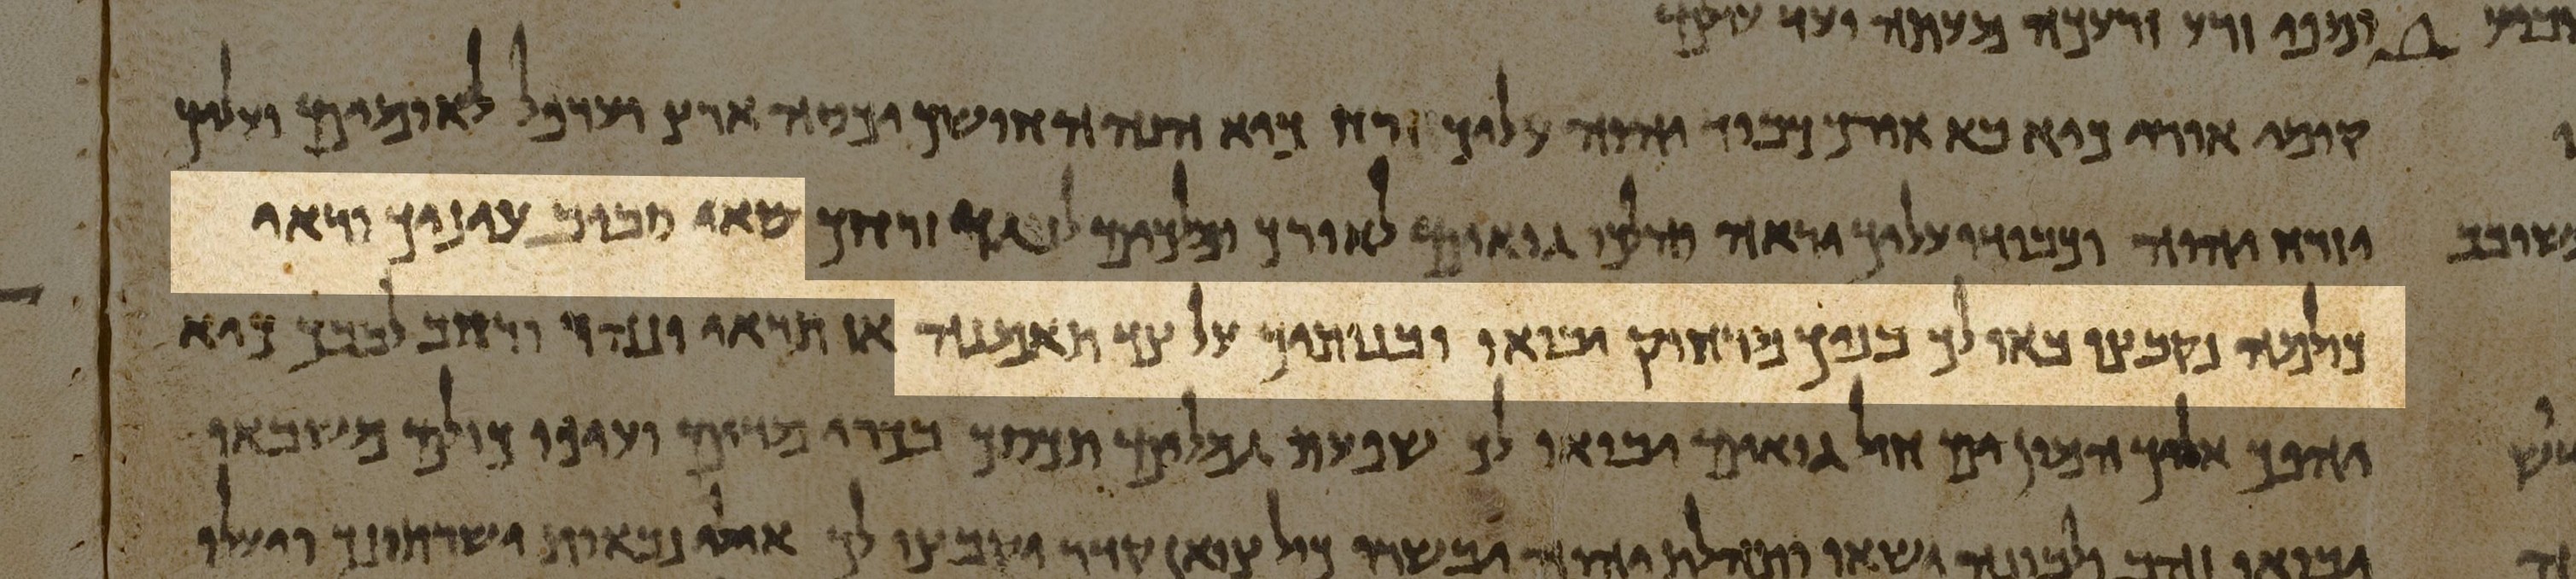 ומפי זרע זרעכה מעתה ועד עולם
קומי אורי כיא בא אורך וכבוד יהוה עליך זרח כיא הנה החושך יכסה ארץ וערפל לאומים ועליך
יזרח יהוה וכבודו עליך יראה והלכו גואים לאורך ומלכים לנגד זרחך שאי סביב עיניך וראי
כולמה נקבצו באו לך בניך מרחוק יבואו ובנותיך על צד תאמנה אז תראי ורחב לבבך כיא
יהפך אליך המון ים חיל גואים יבואו לך שפעת גמלים תכסך בכרי מדים ועיפו כולם משבאו
יבואו זהב ולבונה ישאו ותהלת יהוה יבשרו כול צואן קדר יקבצו לך אילי נבאות ישרתונך ויעלו